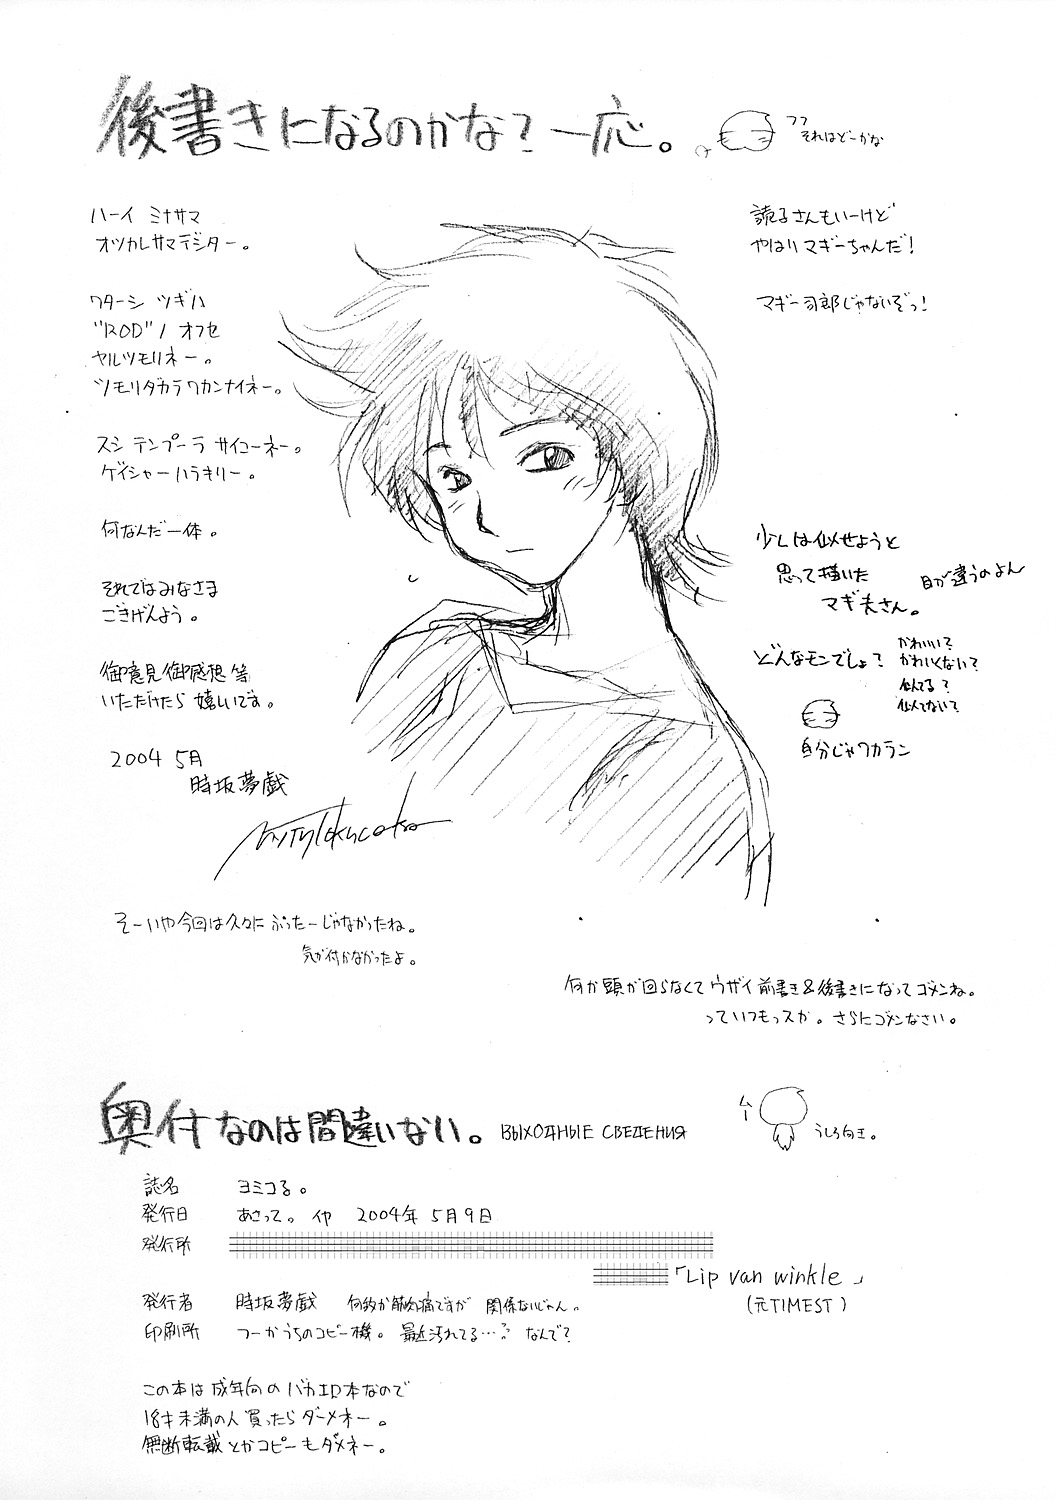 後書きになるのかな？一応。
フフ
それはどーかな
ハーイ ミナサマ
オツカレサマデシター。
ワターシ ツギハ
"ROD"ノ オフセ
ヤルツモリネー。
ツモリダカラワカンナイネー。
スシ テンプーラ サイコーネー。
ゲイシャー ハラキリー。
何なんだ一体。
それではみなさま
ごきげんよう。
御意見御感想等
いただけたら嬉しいです。
2004 5月
時坂夢戯
読子さんもいーけど
やはりマギーちゃんだ！
マギー司郎じゃないぞっ！
少しは似せようと
思って描いた
マギ夫さん。
目が違うのよん
どんなモンでしょ？
かわいい？
かわいくない？
似てる？
似てない？
自分じゃワカラン
そーいや今回は久々に ぷったーじゃなかったね。
気が付かなかったよ。
何か頭が回らなくてウザイ前書き&後書きになってゴメンね。
っていつもっスか。さらにゴメンなさい。
奥付なのは間違いない。 ВЫХОДНЫЕ СВЕДЕНИЯ
ムー
うしろ向き。
誌名 ヨミコる。
発行日 あさって。 イヤ 2004年 5月9日
発行所
「Lip van winkle」
(元TIMEST)
発行者 時坂夢戯 何故か筋肉痛ですが 関係ないじゃん。
印刷所 つーかうちのコピー機。 最近汚れてる…？ なんで？
この本は成年向のバカエロ本なので
18才未満の人買ったらダーメネー。
無断転載とかコピーもダメネー。